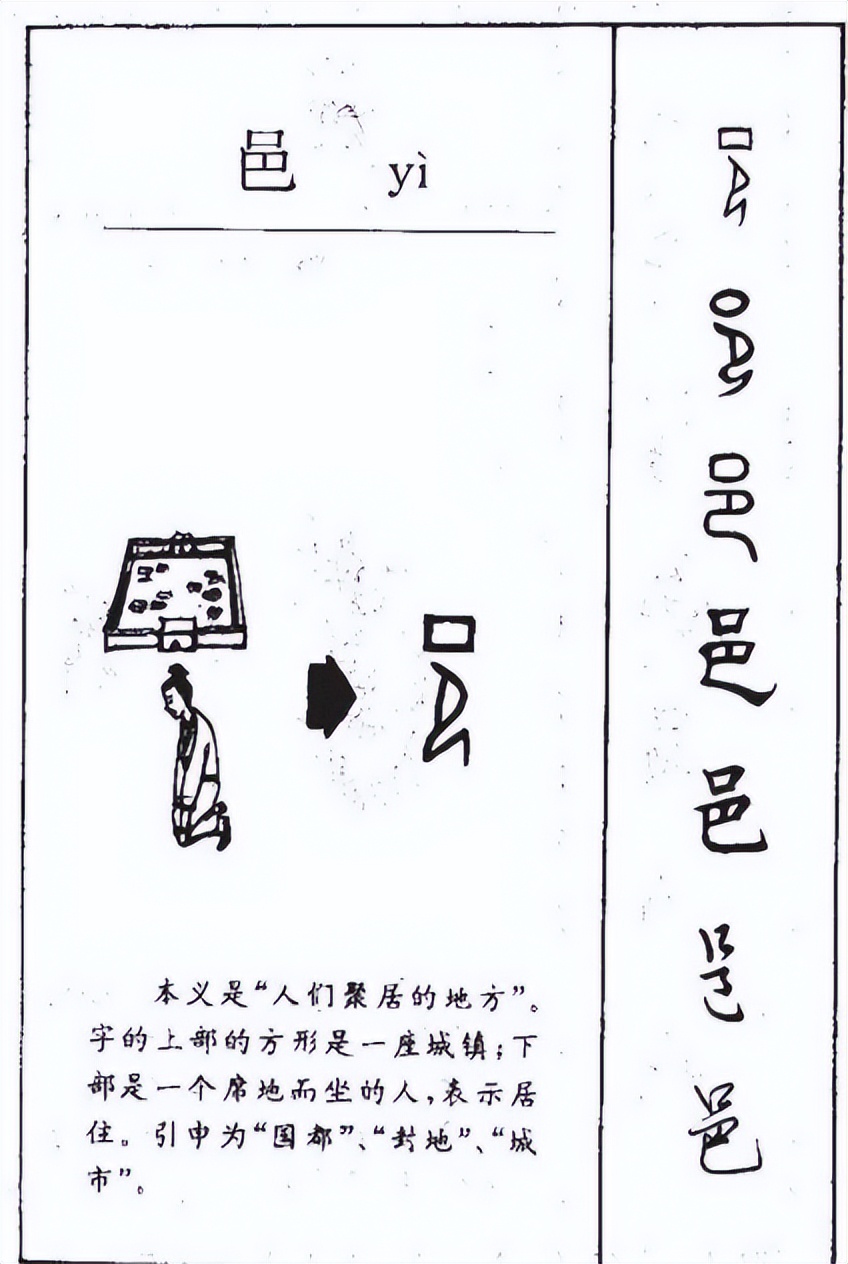 邑 yì
本义是“人们聚居的地方”。
字的上部的方形是一座城镇；下
部是一个席地而坐的人，表示居
住。引申为“国都”、“封地”、“城
市”。
邑
邑
邑
邑
邑
邑
邑